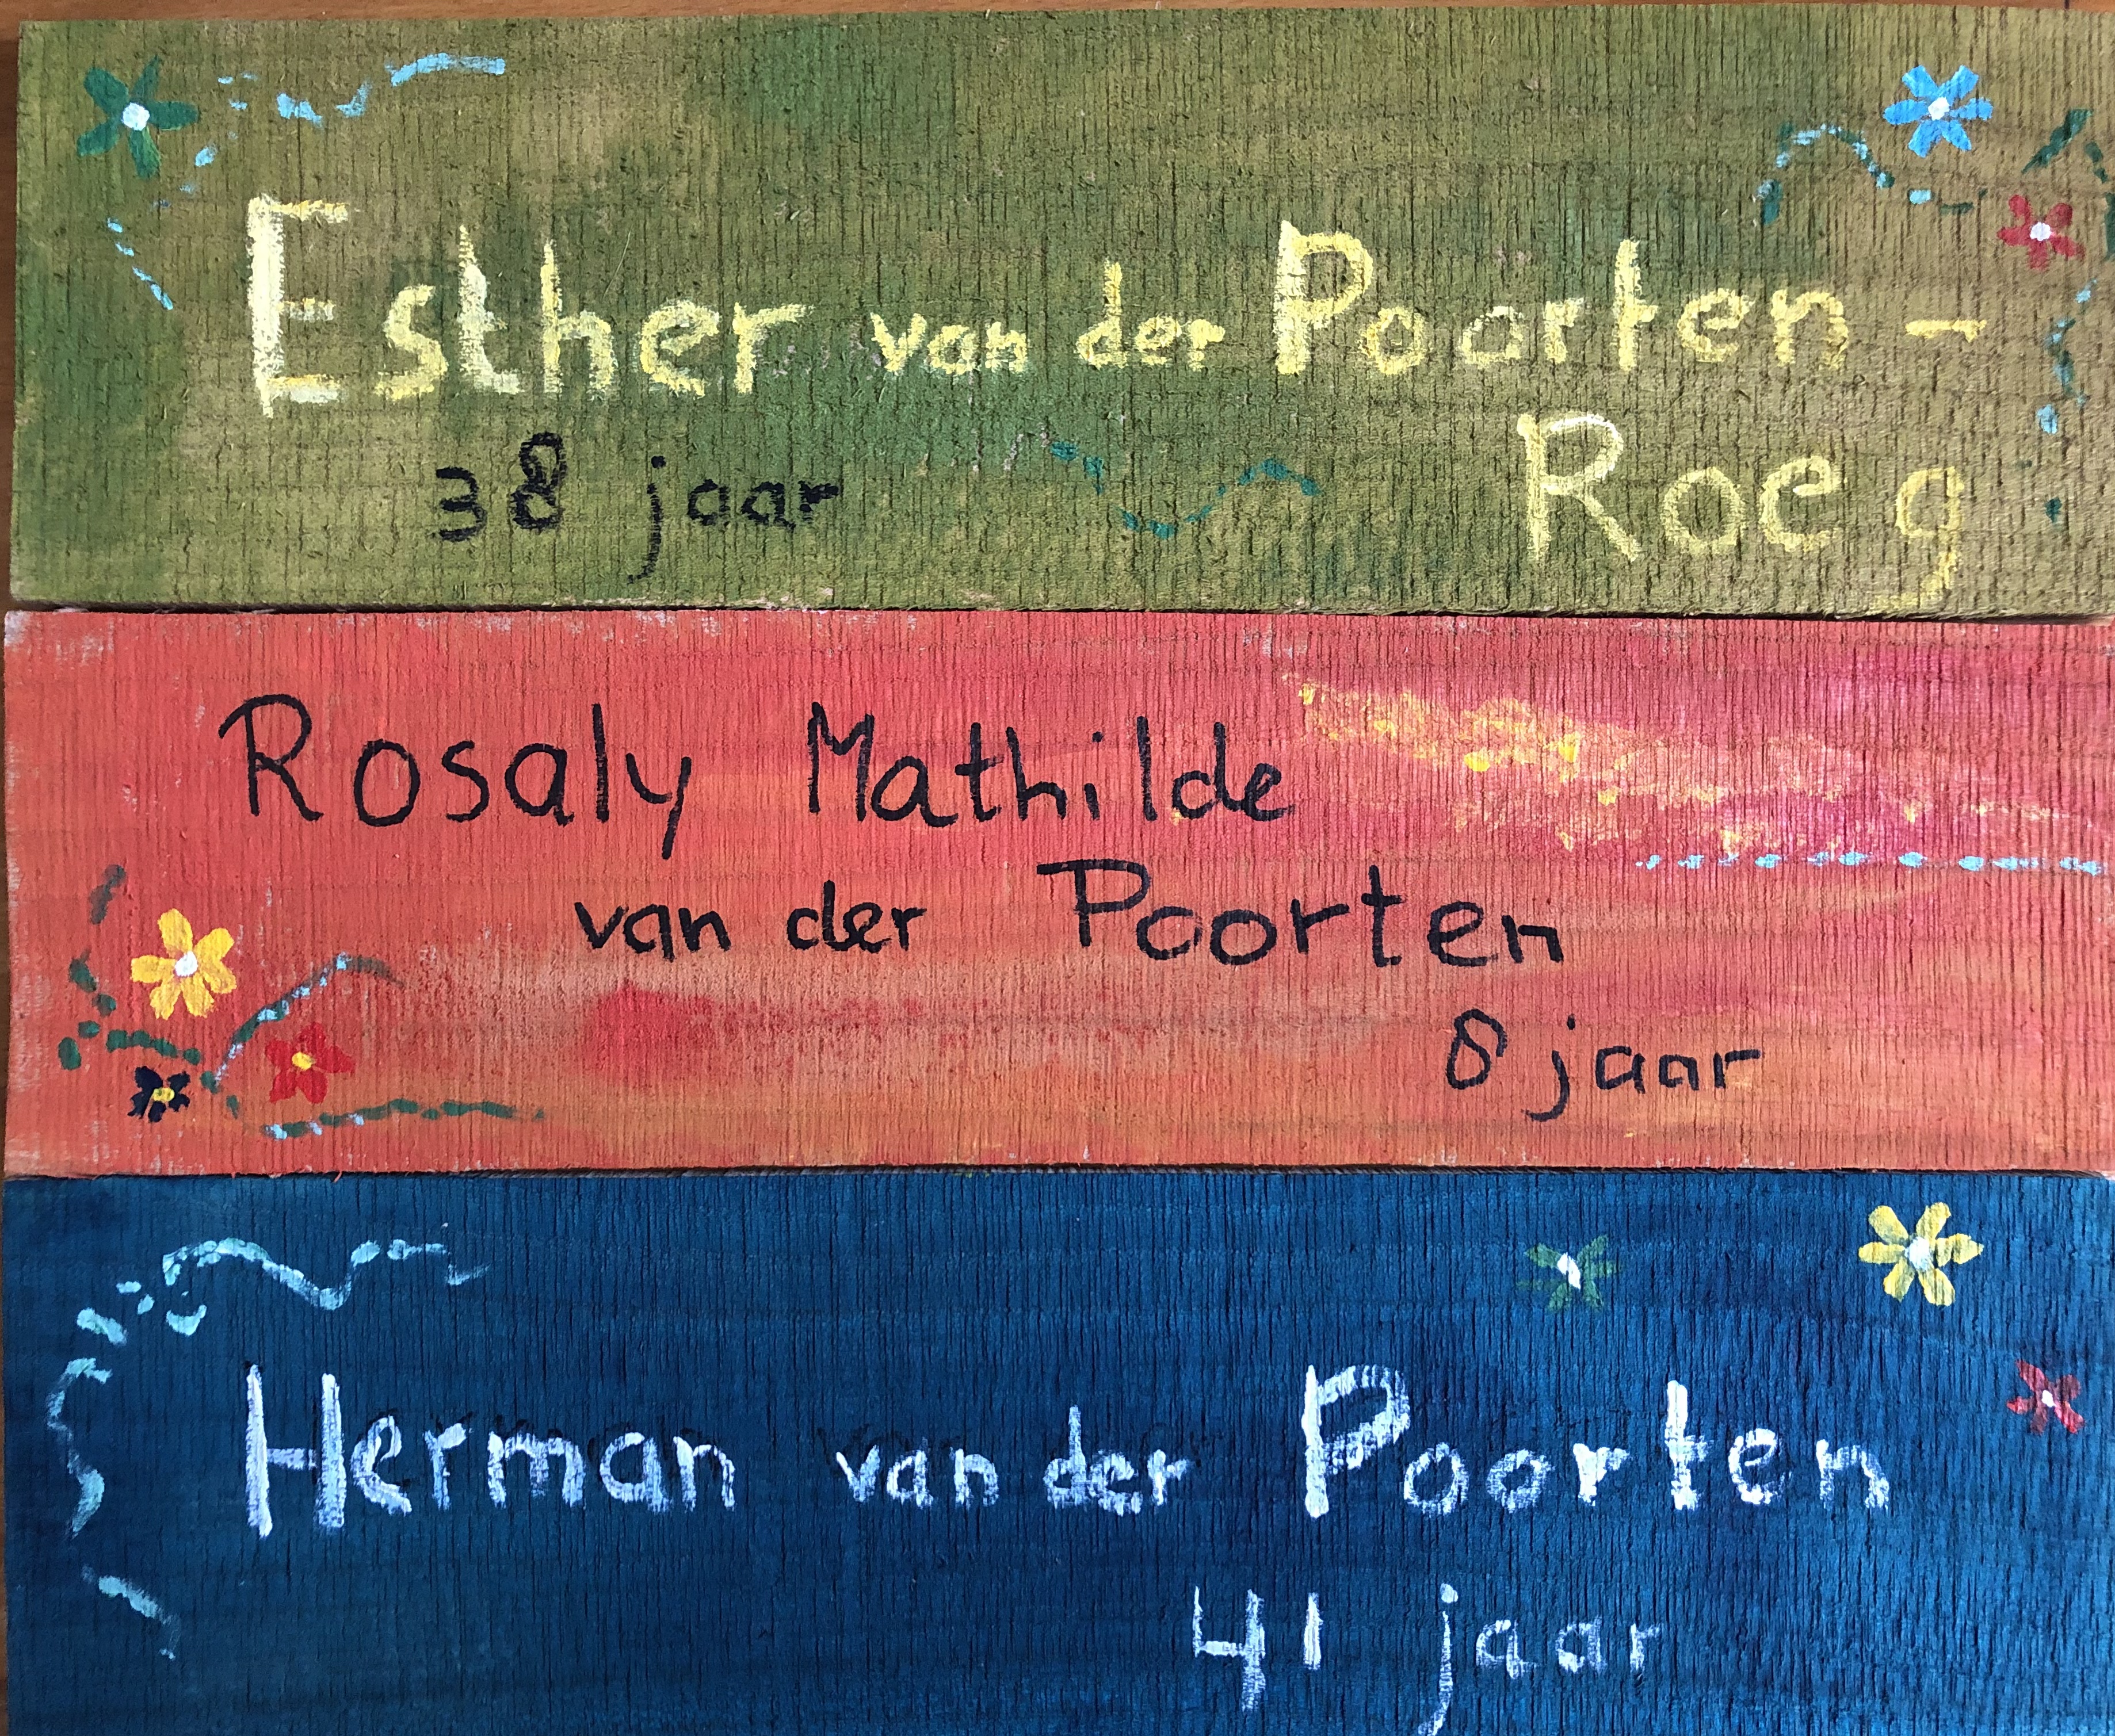 Esther van der Poorten -
Roeg
38 jaar
Rosaly Mathilde
van der Poorten
8 jaar
Herman van der Poorten
41 jaar